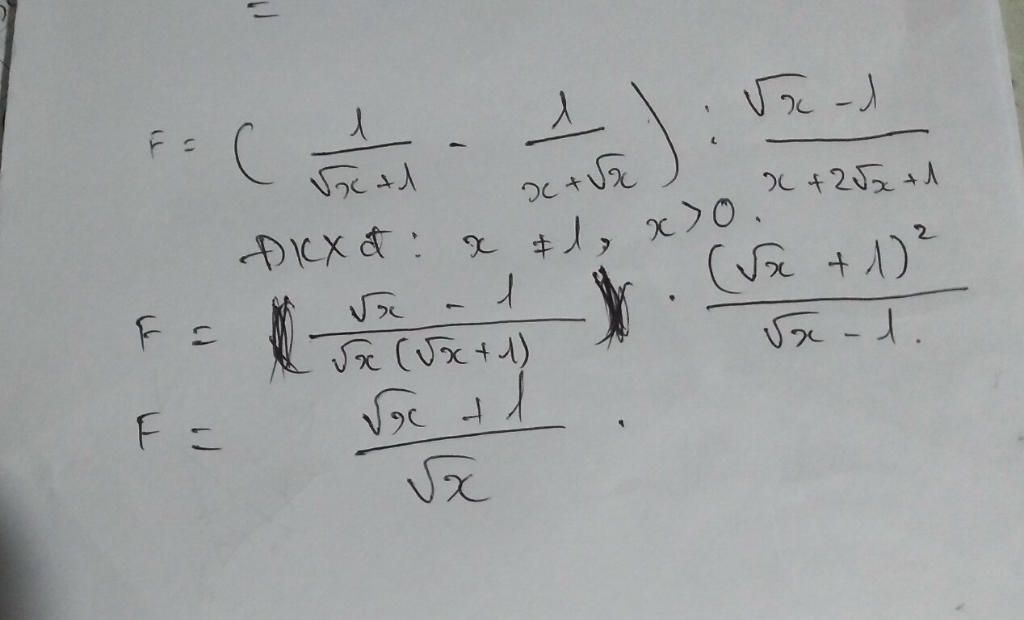 =
F = ( 1/(√x + 1) - 1/(x + √x) ) : (√x - 1)/(x + 2√x + 1)
ĐKXđ : x ≠ 1, x > 0.
F = (√x - 1)/(√x (√x + 1)) . (√x + 1)²/(√x - 1).
F = (√x + 1)/√x .